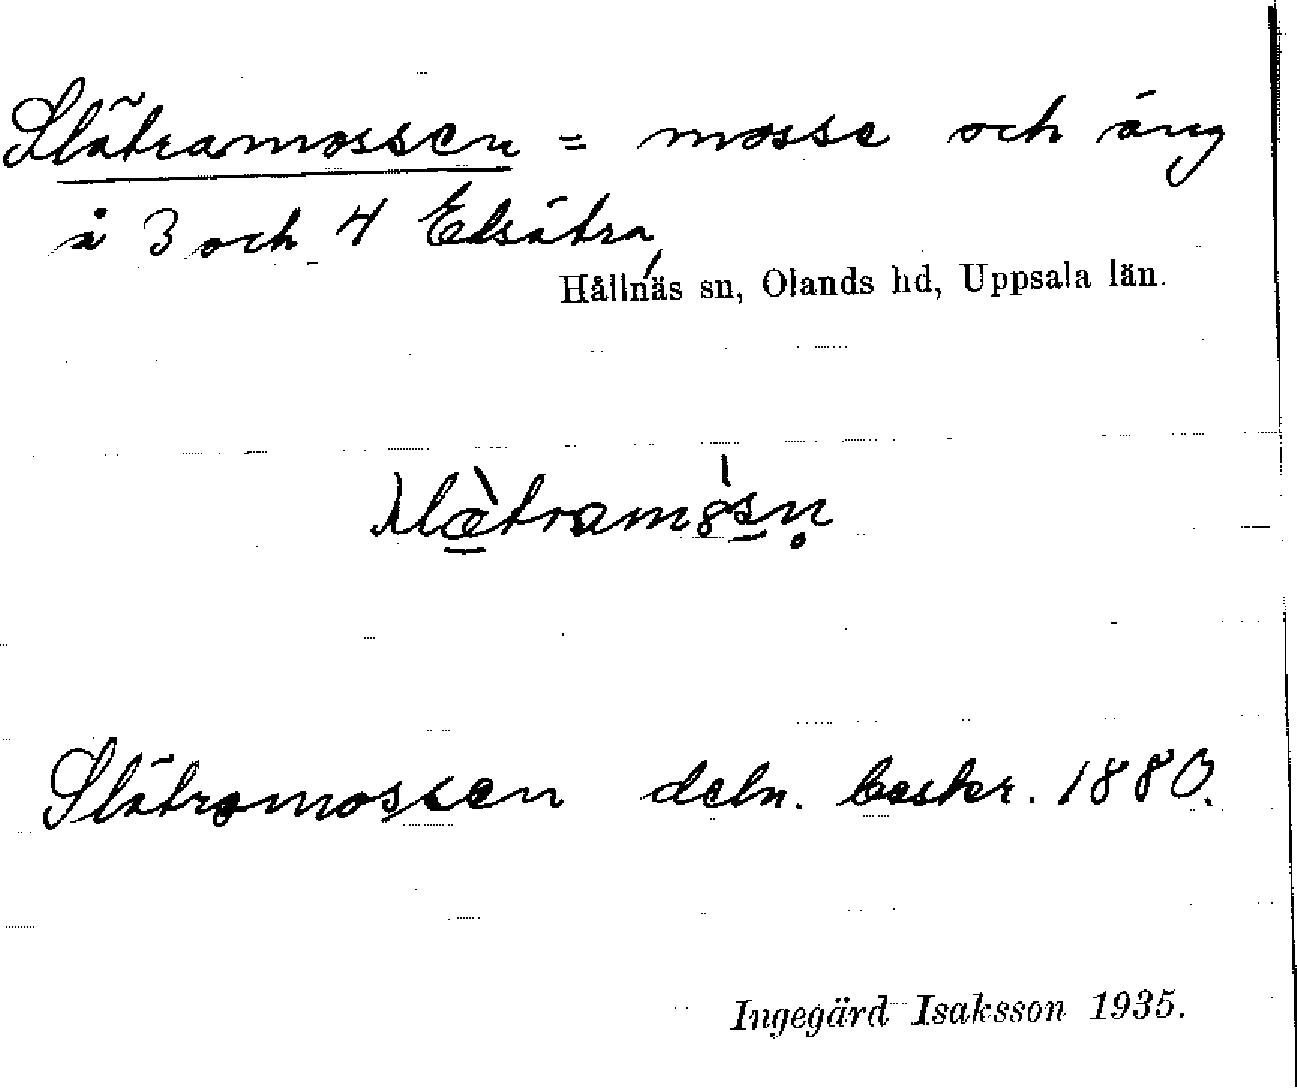 Slätramossen = mosse och äng
å 3 och 4 Elsätra,
Hållnäs sn, Olands hd, Uppsala län.
Slätramossen deln. beskr. 1880.
Ingegärd Isaksson 1935.